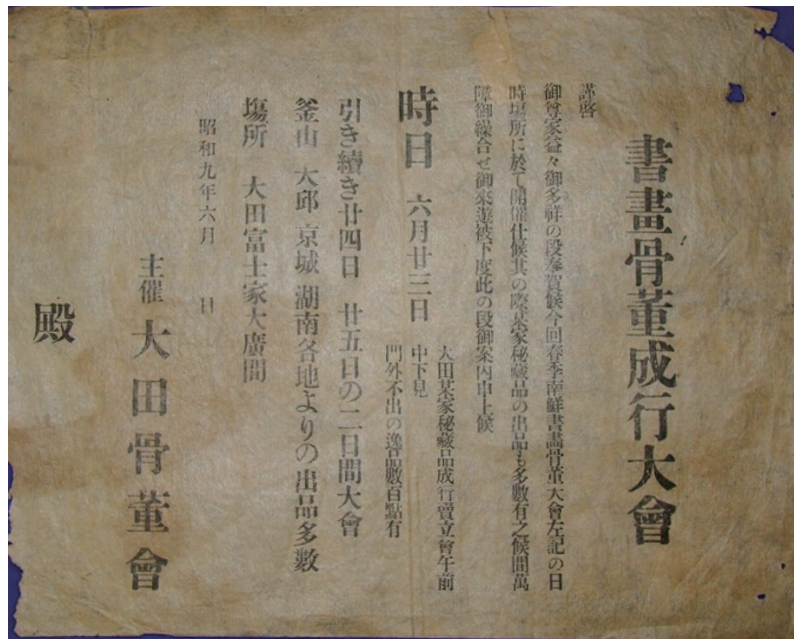 書畫骨董成行大會
謹啓
御尊家益々御多祥の段奉賀候今回春季南鮮書畵骨董大會左記の日
時場所に於て開催仕候其の際某家秘藏品の出品も多數有之候間萬
障御繰合せ御來遊被下度此の段御案內申上候
時日 六月廿三日
大田某家秘藏品成行賣立會午前
中下見
門外不出の逸品數百點有
引き續き廿四日 廿五日の二日間大會
釜山 大邱 京城 湖南各地よりの出品多數
塲所 大田富士家大廣間
昭和九年六月 日
主催 大田骨董會
殿